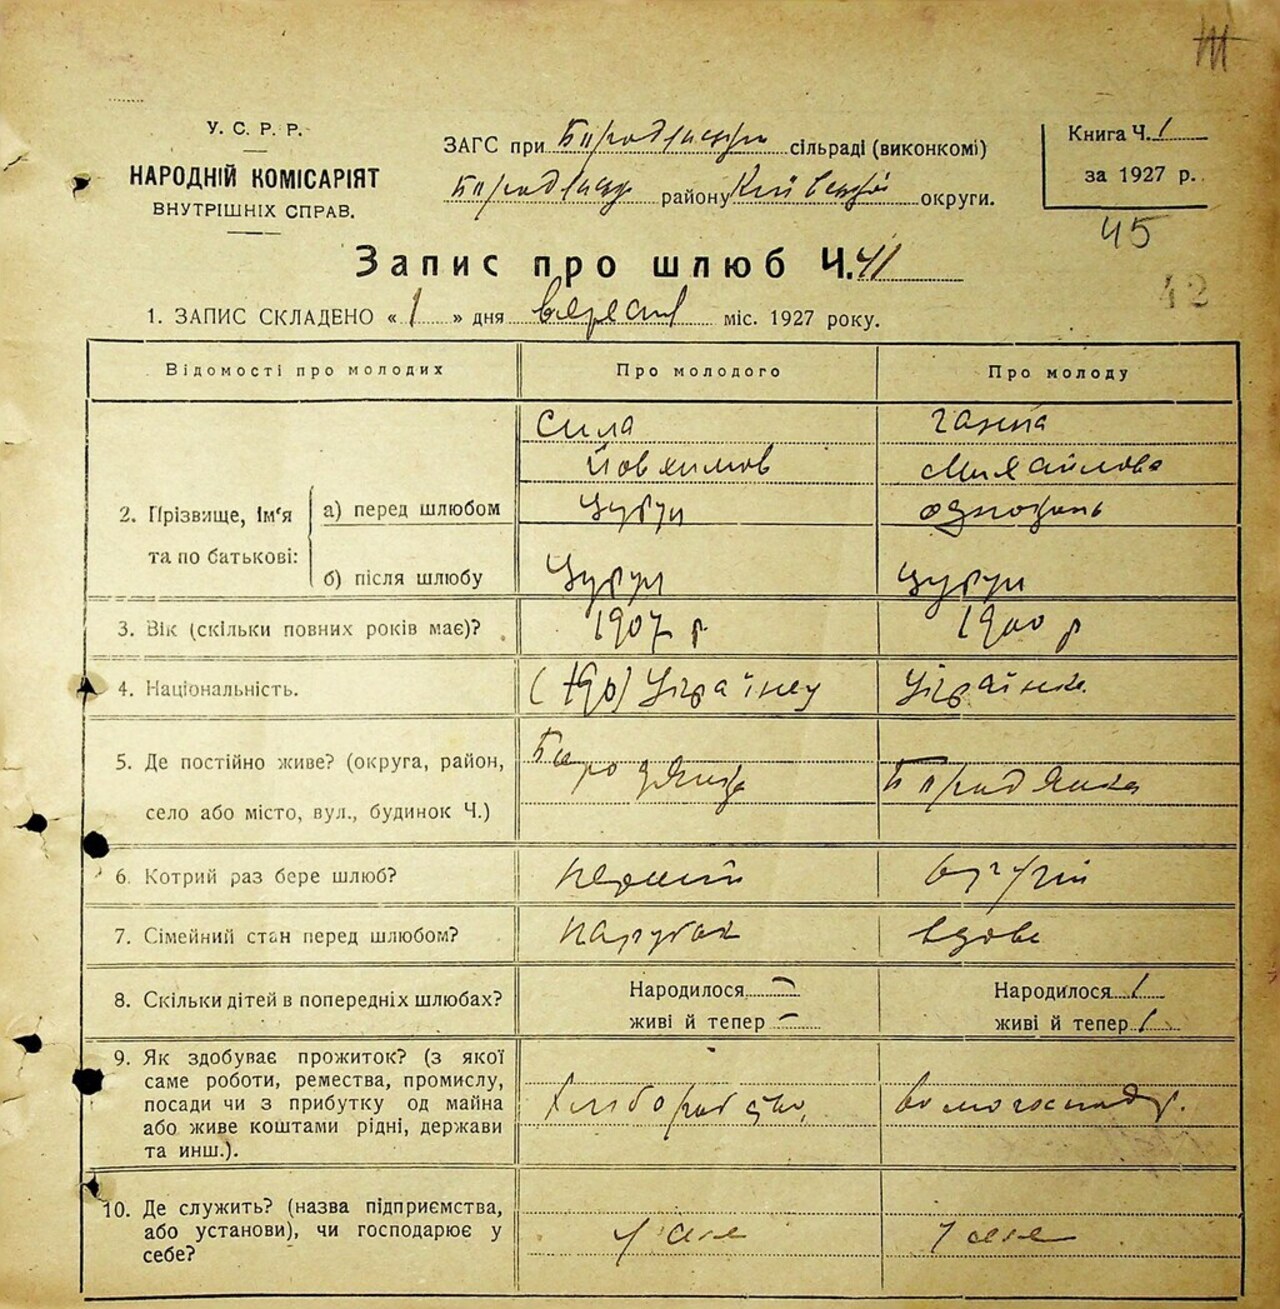 У. С. Р. Р.
НАРОДНІЙ КОМІСАРІЯТ
ВНУТРІШНІХ СПРАВ.
ЗАГС при сільраді (виконкомі)
району округи.
Книга Ч. 1
за 1927 р.
45
42
Запис про шлюб Ч. 41
1. ЗАПИС СКЛАДЕНО «1» дня міс. 1927 року.
Відомості про молодих Про молодого Про молоду
2. Прізвище, ім'я та по батькові:
а) перед шлюбом
б) після шлюбу
Сила
Йовхимов
Цурул
Цурул
Ганна
Михайлова
Цурул
3. Вік (скільки повних років має)? 1907 р 1900 р
4. Національність. Українец Українка
5. Де постійно живе? (округа, район,
село або місто, вул., будинок Ч.)
Бородянка Бородянка
6. Котрий раз бере шлюб? перший другий
7. Сімейний стан перед шлюбом? парубок вдова
8. Скільки дітей в попередніх шлюбах? Народилося — Народилося 1
живі й тепер — живі й тепер 1
9. Як здобуває прожиток? (з якої
саме роботи, ремества, промислу,
посади чи з прибутку од майна
або живе коштами рідні, держави
та инш.).
Хліборобство,
10. Де служить? (назва підприємства,
або установи), чи господарює у
себе?
у себе у себе